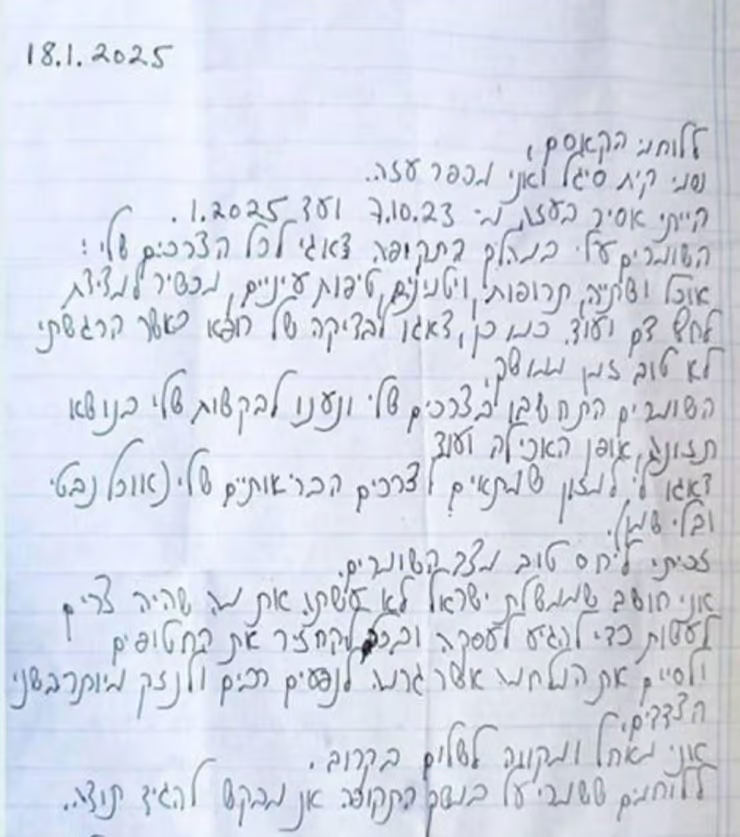 18.1.2025
ללוחמי הקאסם,
שמי קית סיגל ואני מכפר עזה.
הייתי אסיר בעזה מ- 7.10.23 ועד 1.2025.
השומרים עלי במהלך התקופה דאגו לכל הצרכים שלי:
אוכל ושתייה, תרופות, ויטמינים, טיפות עיניים, מכשיר למדידת
לחץ דם ועוד. כמו כן, דאגו לבדיקה של רופא כאשר הרגשתי
לא טוב זמן ממושך.
השומרים התחשבו בצרכים שלי ונענו לבקשות שלי בנושא
תזונה, אופן האכילה ועוד
דאגו לי למזון שמתאים לצרכים הבריאותיים שלי (אוכל נבטי
ובלי שמן).
זכיתי ליחס טוב מצד השומרים.
אני חושב שממשלת ישראל לא עשתה את מה שהיה צריך
לעשות כדי להגיע לעסקה ובכך להחזיר את החטופים
ולסיים את המלחמה אשר גרמה לנפגעים רבים ולנזק מיותר בשני
הצדדים.
אני מאחל ומקווה לשלום בקרוב.
ללוחמים ששמרו עלי במשך התקופה אני מבקש להגיד תודה.